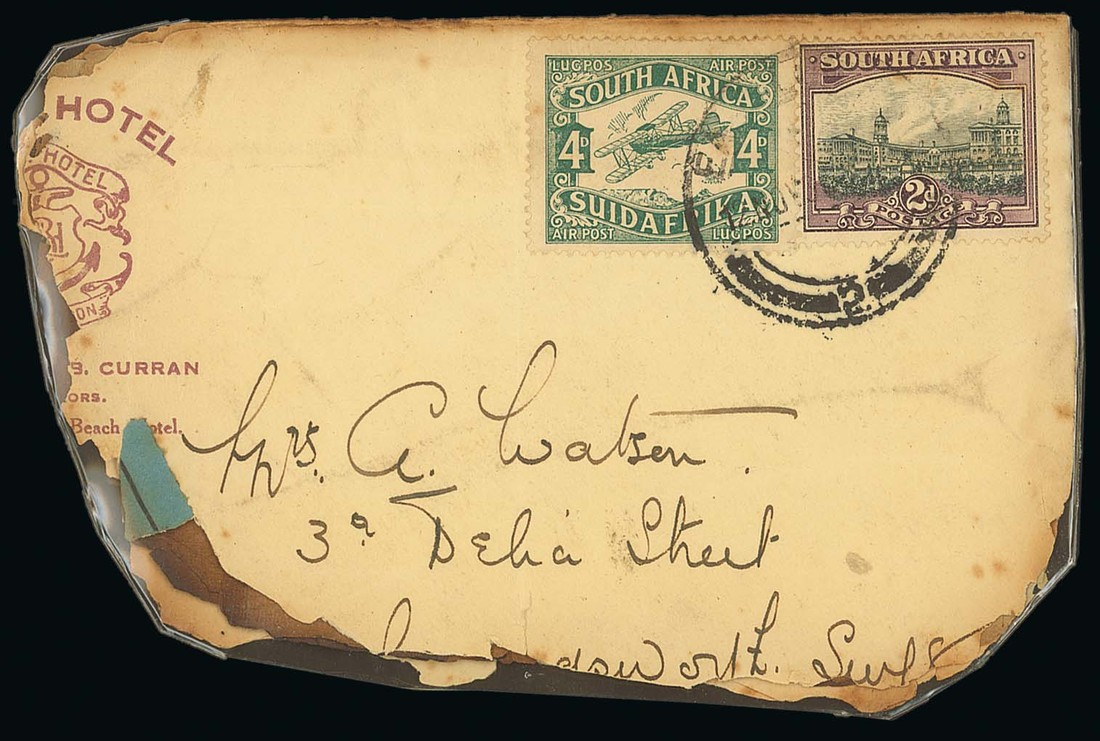 HOTEL
HOTEL
ON
B. CURRAN
ORS.
Beach Hotel.
LUGPOS AIR POST
SOUTH AFRICA
4D 4D
SUIDAFRIKA
AIR POST LUGPOS
SOUTH AFRICA
2d
POSTAGE
Mrs. A. Watson.
3a Delia Street
dsworth.